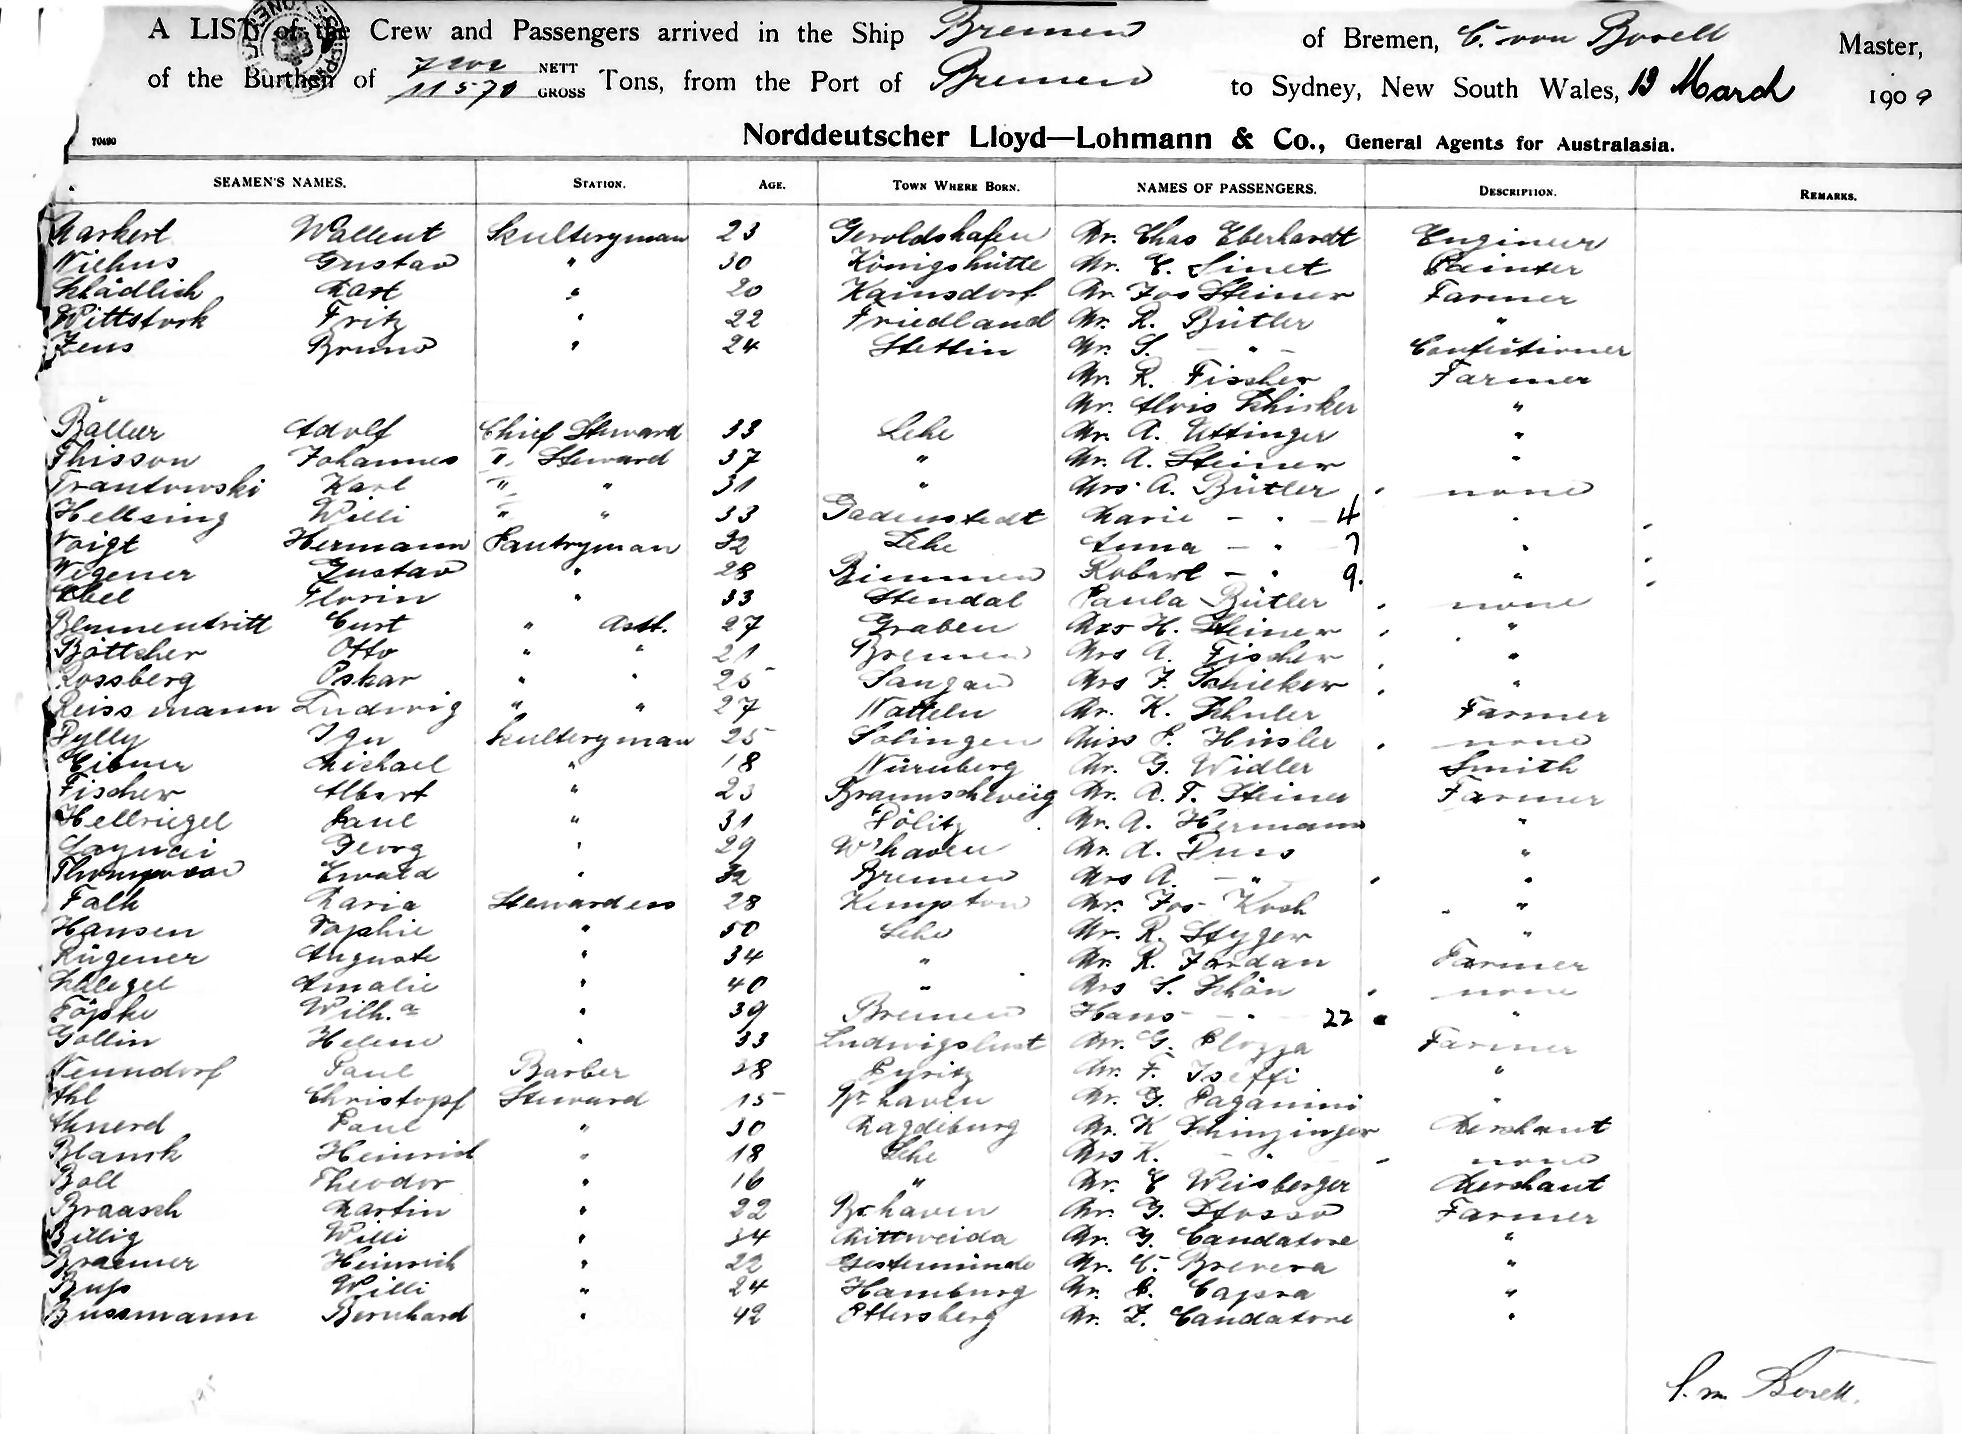 A LIST of the Crew and Passengers arrived in the Ship Bremen of Bremen, C. von Borell Master,
of the Burthen of 7202 NETT 11570 GROSS Tons, from the Port of Bremen to Sydney, New South Wales, 13 March 1909
70490 Norddeutscher Lloyd—Lohmann & Co., General Agents for Australasia.
SEAMEN'S NAMES. STATION. AGE. TOWN WHERE BORN. NAMES OF PASSENGERS. DESCRIPTION. REMARKS.
Markert Skulleryman 23 Geroldshafen Mr. Chas Eberhardt Engineer
Niehus Gustav " 30 Königshütte Mr. E. Linet Painter
Schädlich " 20 Kainsdorf Mr Jos Steiner Farmer
Wittstock Fritz " 22 Friedland Mr. R. Bütler "
Zeus Bruno " 24 Stettin Mr. S. - " - Confectioner
Mr. R. Fischer Farmer
Mr. Alois "
Adolf Chief Steward 33 Lehe Mr. A. Uttinger "
Thisson Johannes II. Steward 37 " Mr. A. Steiner "
Trantowski Karl " " 31 " Mrs A. Bütler none
Hellsing Willi " " 33 Gadenstedt Marie - " - 4 "
Voigt Hermann Pantryman 32 Lehe Anna - " - 7 "
Wegener Gustav " 28 Robert - " 9. "
Abel Florin " 33 Stendal Paula Bütler none
Blumentritt Curt " Asst. 27 Graben Mrs H. Steiner "
Böttcher Otto " " 21 Bremen Mrs A. Fischer "
Rossberg Oskar " " 25 Mrs F. "
Reissmann Ludwig " " 27 Natteln Mr. K. Schuler Farmer
Pylly Skulleryman 25 Solingen Miss Hüsler none
Michael " 18 Nürnberg Mr. G. Widler Smith
Fischer Albert " 23 Braunschweig Mr. A. F. Steiner Farmer
Hellriegel Paul " 31 Pölitz Mr. A. Hermann "
Georg " 29 W'haven Mr. A. "
Ewald " 32 Bremen Mrs A. - " - "
Falk Maria Stewardess 28 Kempton Mr. Jos Koch "
Hansen Sophie " 50 Lehe Mr. R. Styger "
Rügener Auguste " 34 " Mr. R. Jordan Farmer
Schlegel Amalie " 40 " Mrs S. Schön none
Töpke Wilh.a " 39 Bremen Hans - " 22 "
Gollin Helene " 33 Ludwigslust Mr. G. Plozza Farmer
Nenndorf Paul Barber 38 Pyritz Mr. F. "
Ahl Christopf Steward 15 haven Mr. G. Paganini "
Ahnerd Paul " 30 Magdeburg Mr. K Schinzinger Merchant
Blanck Heinrich " 18 Lehe Mrs K. - " - none
Boll Theodor " 16 " Mr. E Weisberger Merchant
Braasch Martin " 22 Br.haven Mr. G. Farmer
Billig Willi " 24 Mittweida Mr. G. Candatore "
Braemer Heinrich " 22 Geestemünde Mr. C. Brevera "
Willi " 24 Hamburg Mr. Capra "
Bussmann Bernhard " 42 Ettersberg Mr. Z. Candatore "
C. v. Borell.